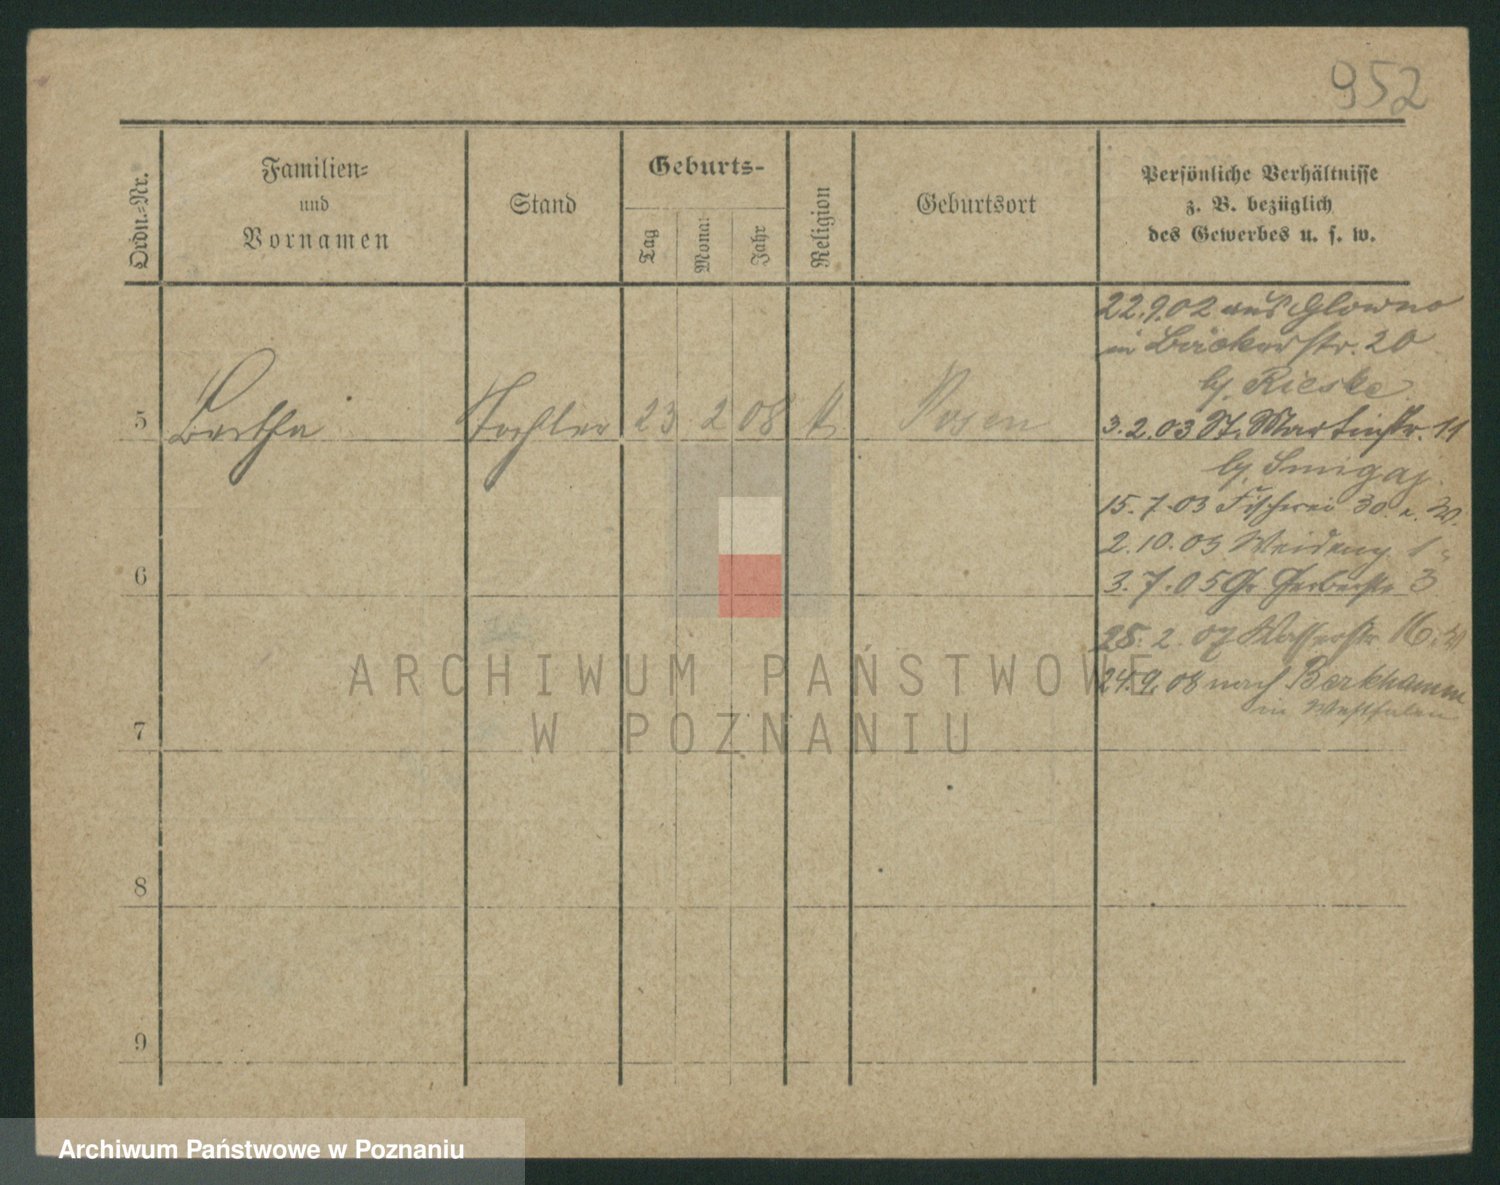 952
Ordn.-Nr.
Familien-
und
Vornamen
Stand
Geburts-
Tag
Mona:
Jahr
Religion
Geburtsort
Persönliche Verhältnisse
z. B. bezüglich
des Gewerbes u. s. w.
22.9.02 aus Glowno
in Bäckerstr. 20
bj. Rieske
5 Bertha Tochter 23 2 08 k Posen
3.2.03 St. Martinstr. 11
bj. Smigaj.
15.7.03 Fischerei 30.
2.10.03 Weideng.
6
3.7.05 Gr Gerberstr 3
25.2.07 Wasserstr 16.
24.9.08 nach
in Westfalen
7
8
9
ARCHIWUM PAŃSTWOWE
W POZNANIU
Archiwum Państwowe w Poznaniu